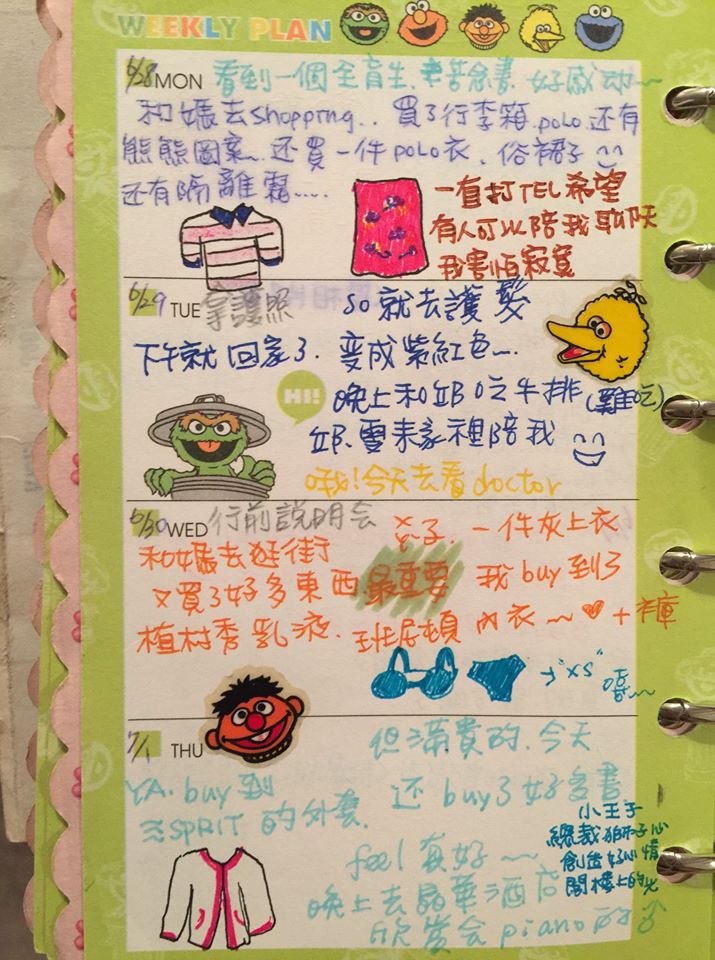 WEEKLY PLAN
6/28 MON 看到一個全盲生,辛苦念書.好感動~~
和媽去shopping.. 買了行李箱.polo.还有
熊熊圖案~.还買一件polo衣.俗裙子
还有隔離霜.....
一直打TEL希望
有人可以陪我聊天
我害怕寂寞
6/29 TUE 拿護照 so就去護髮
下午就回家了.變成紫紅色~..
HI!
晚上和邱吃牛排(難吃)
邱.要來家裡陪我
哦!今天去看doctor
6/30 WED 行前説明会
一件灰上衣
和媽去逛街
又買了好多東西 最重要 我buy到了
植村秀乳液. 班尼頓內衣~♡+褲
→"XS"
7/1 THU 但滿貴的.今天
YA.buy到 还buy了好多書
ESPRIT的外套.
小王子
總裁獅子心
創造好心情
閣樓上的光
feel真好~
晚上去晶華酒店
欣賞会piano的